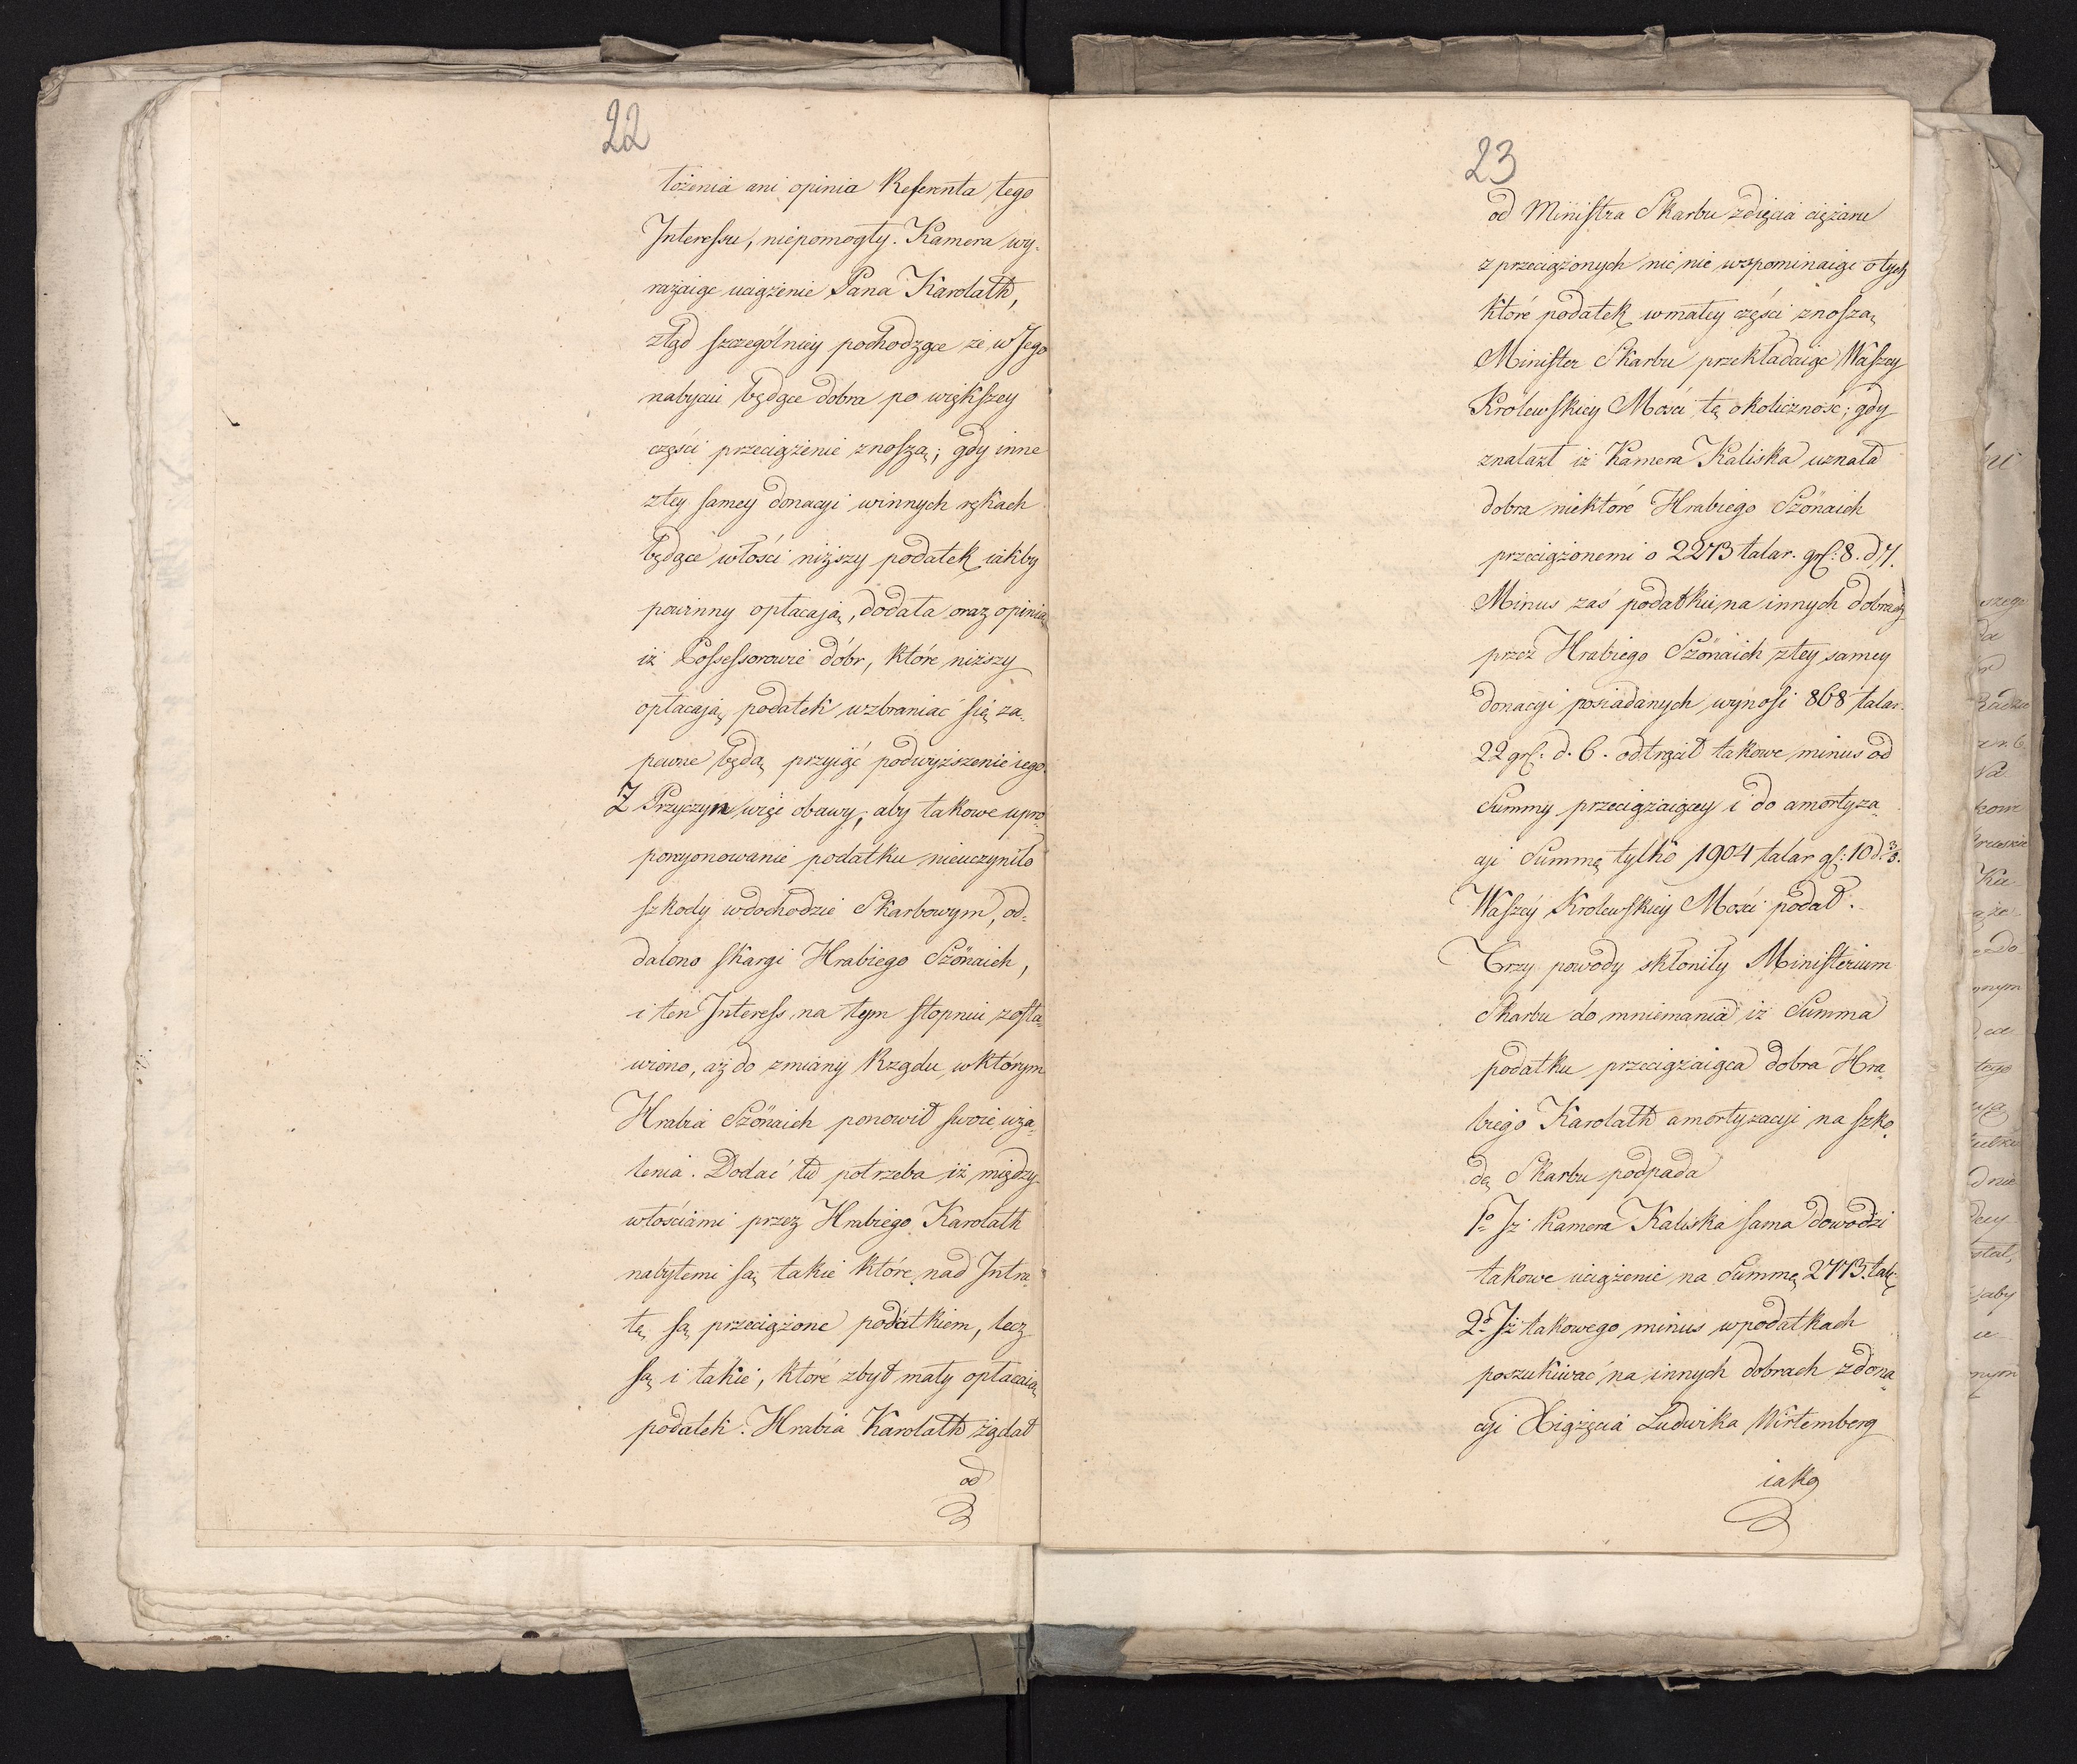 22
łożenia ani opinia Referenta tego
Interessu, niepomogły. Kamera wy-
rażaiąc uciążenie Pana Karolath,
ztąd szczególniey pochodzące że w Jego
nabyciu będące dobra po większey
części przeciążenie znoszą; gdy inne
ztey samey donacyi winnych rękach
będące włości niższy podatek iakby
powinny opłacają, dodała oraz opinią
iż Possessorowie dóbr, które niższy
opłacają podatek wzbraniać się za-
pewne będą przyiąć podwyższenie iego.
Z Przyczyn więc obawy, aby takowe upro-
porcyonowanie podatku nieuczyniło
szkody wdochodzie Skarbowym, od-
dalono skargi Hrabiego Szönaich,
i ten Interess na tym stopniu zosta-
wiono, aż do zmiany Rządu, w którym
Hrabia Szönaich ponowił swoie uża-
lenia. Dodać tu potrzeba iż między
włościami przez Hrabiego Karolath
nabytemi są takie które nad Intra-
tę są przeciążone podatkiem, lecz
są i takie, które zbyt mały opłacaią
podatek. Hrabia Karolath żądał
od
23
od Ministra Skarbu zdięcia ciężaru
z przeciążonych nic nie wspominaiąc o tych
które podatek wmałey części znoszą
Minister Skarbu przekładaiąc Waszey
Królewskiey Mości tę okoliczność; gdy
znalazł iż Kamera Kaliska uznała
dobra niektóre Hrabiego Szönaich
przeciążonemi o 2273 talar. gr: 8. d 7.
Minus zaś podatku na innych dobrach
przez Hrabiego Szönaich ztey samey
donacyi posiadanych wynosi 868 talar.
22 gr: d. 6. odtrącił takowe minus od
Summy przeciążaiącey i do amortyza-
cyi Summę tylko 1904 talar gr: 10 d.
Waszey Królewskiey Mości podał.
Trzy powody skłoniły Ministerium
Skarbu do mniemania iż Summa
podatku przeciążaiąca dobra Hra-
biego Karolath amortyzacyi na szko-
dę Skarbu podpada
1o Iż Kamera Kaliska sama dowodzi
takowe uciążenie na Summę 2773 tal:
2o Iż takowego minus wpodatkach
poszukiwać na innych dobrach zdona-
cyi Xiążęcia Ludwika Wirtemberg
iako